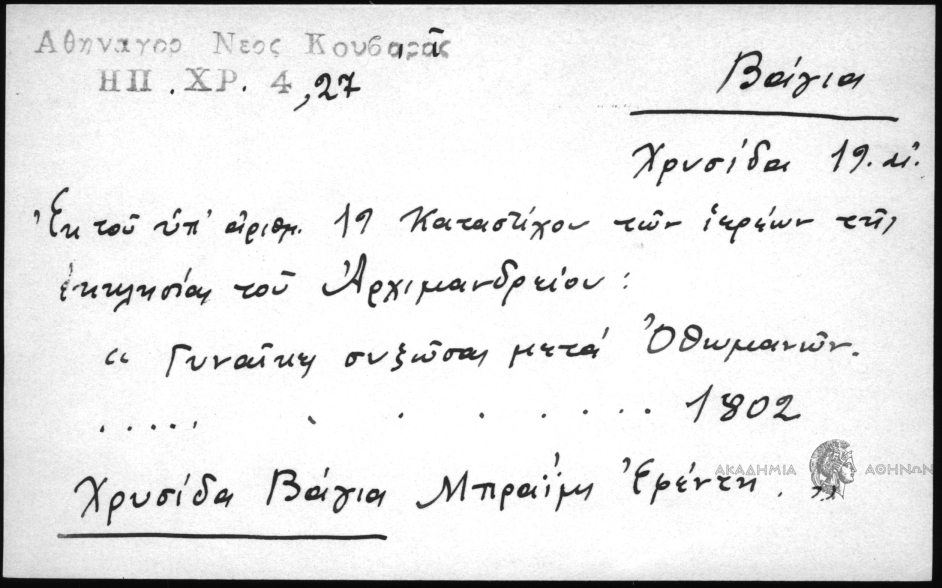 Αθηναγορ Νεος Κουβαρᾶς
ΗΠ. ΧΡ. 4,27
Βάγια
Χρυσίδα 19. αἰ.
Ἐκ τοῦ ὑπ' ἀριθμ. 19 Καταστίχου τῶν ἱερέων τῆς
ἐκκλησίας τοῦ Ἀρχιμανδρείου :
“ Γυναῖκες συζῶσαι μετά Ὀθωμανῶν.
..... . . . . . ... 1802
Χρυσίδα Βάγια Μπραΐμη Ἐφέντη. ”
ΑΚΑΔΗΜΙΑ ΑΘΗΝΩΝ